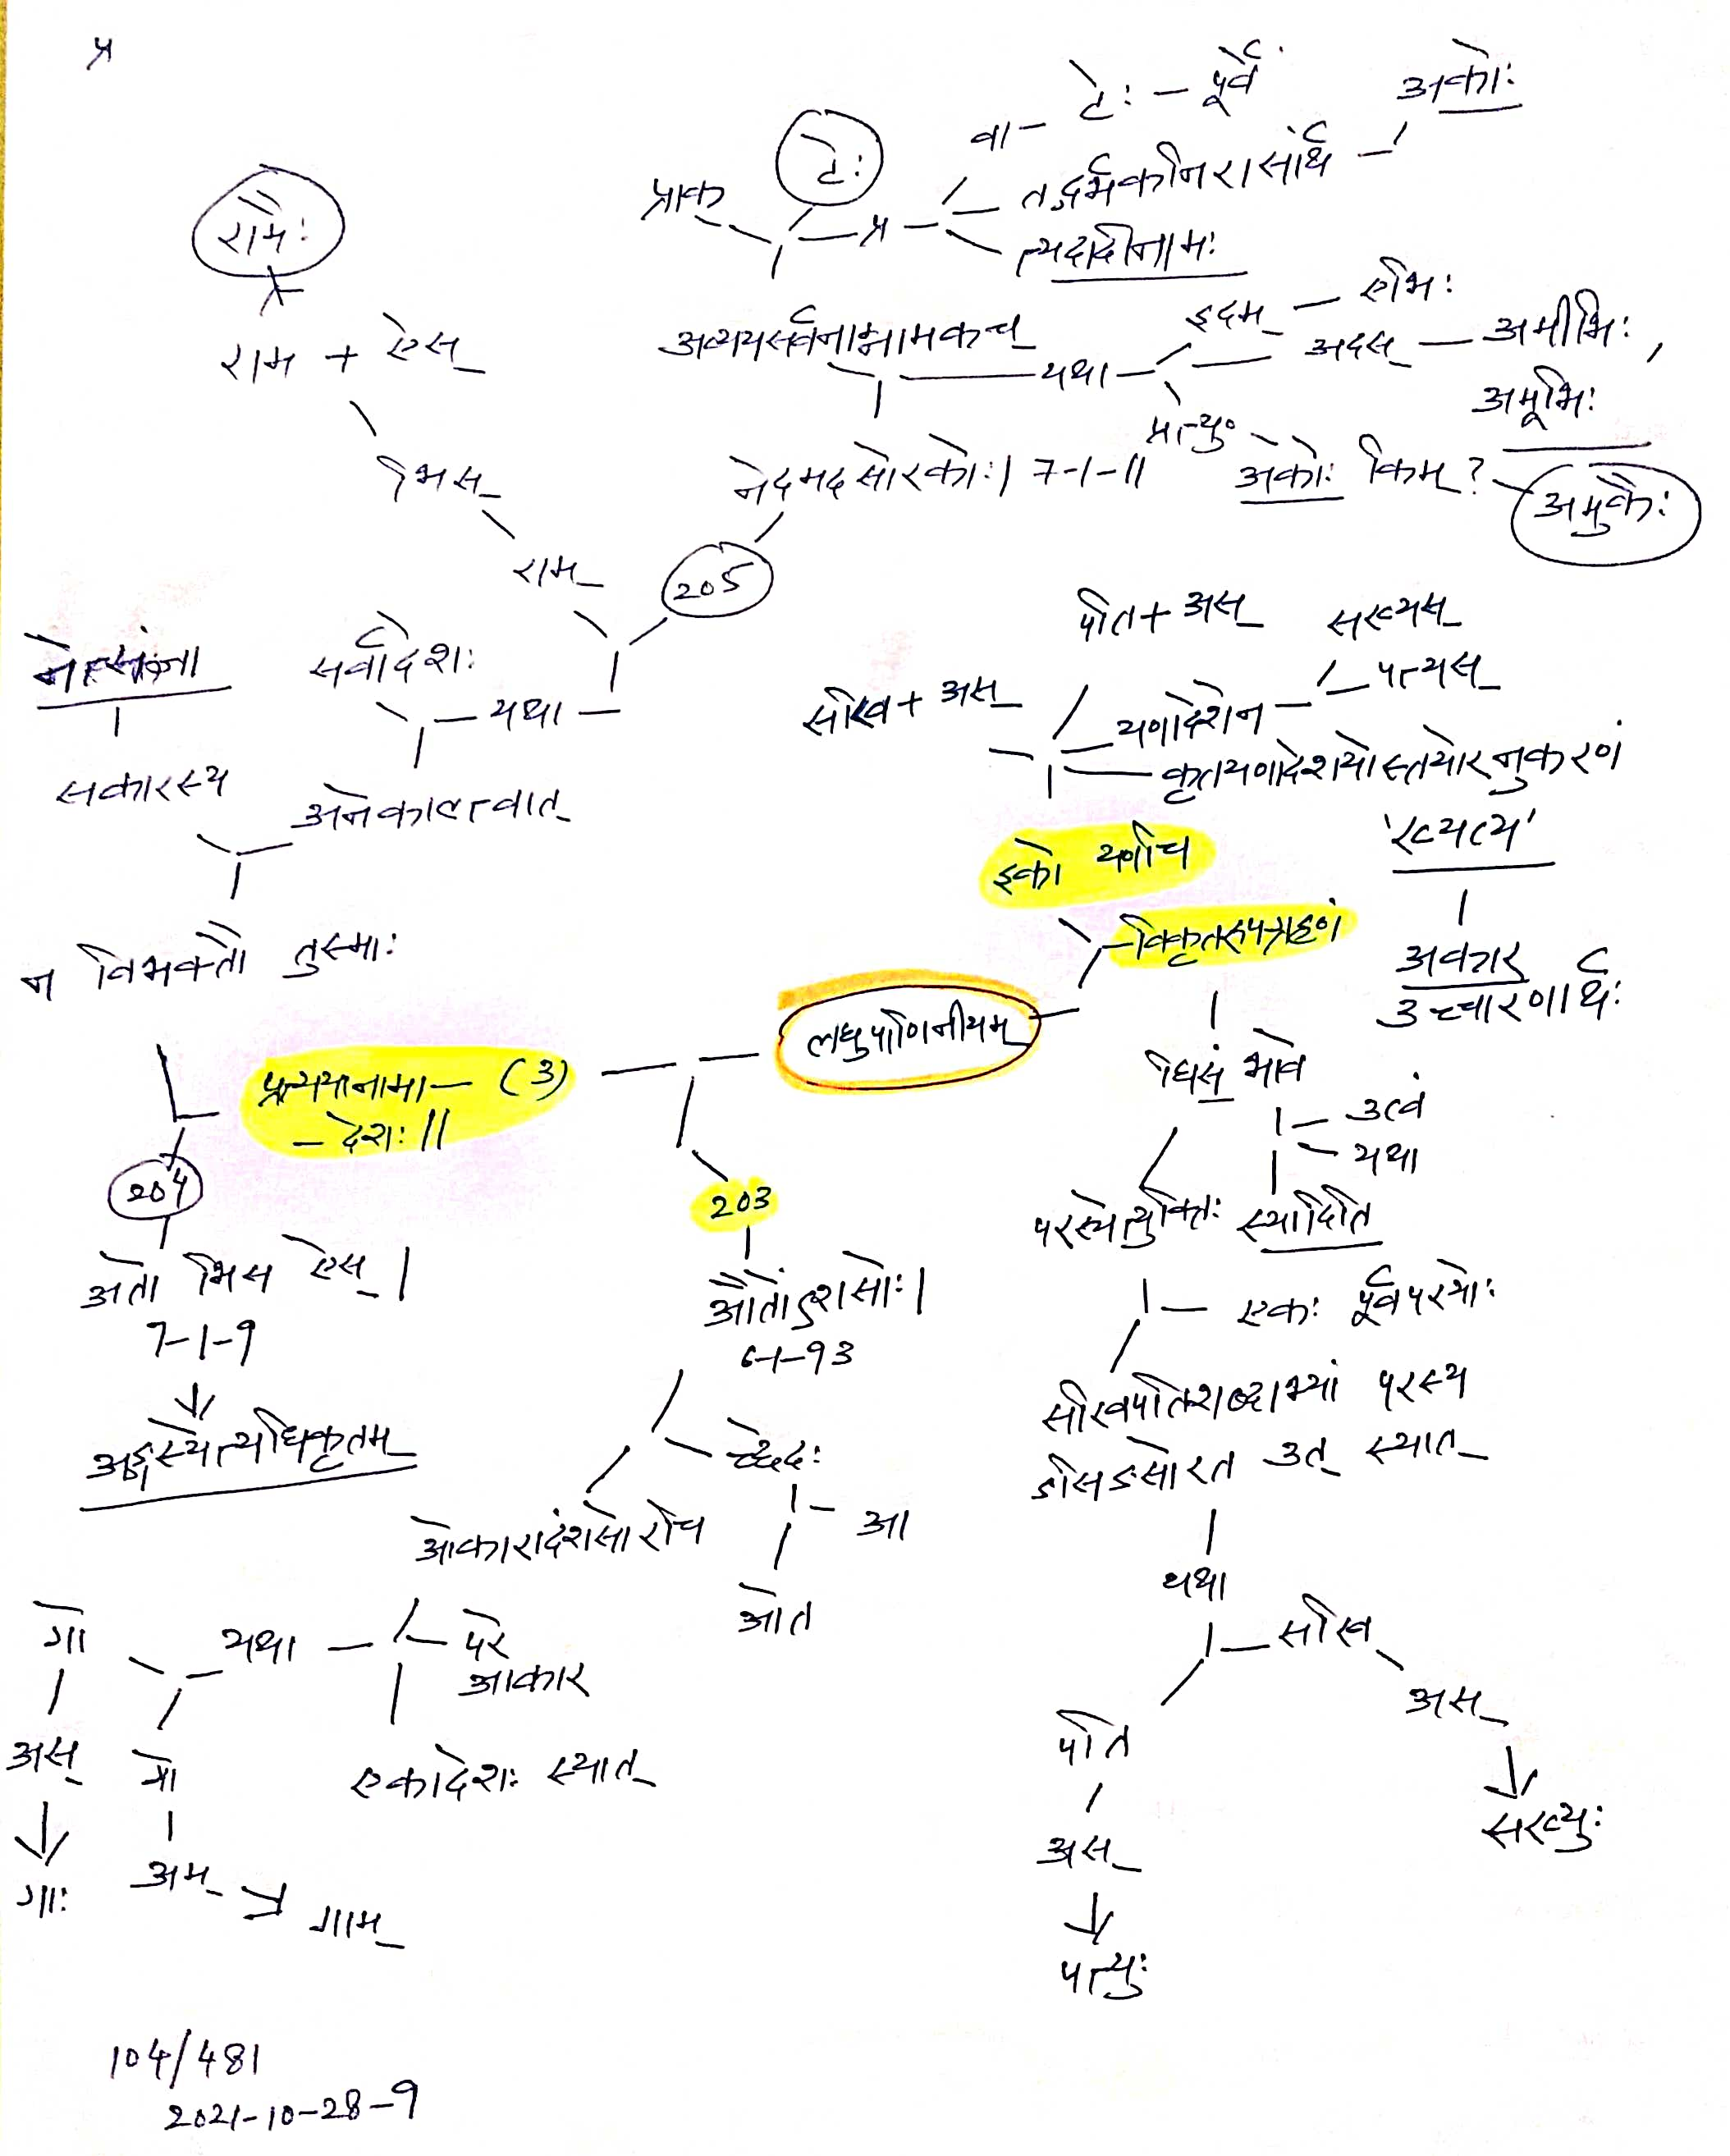 प्र
टेः
प्राक्
वा - टेः - पूर्व
अकोः
त्यदादीनामः
अव्ययसर्वनाम्नामकच्
यथा
इदम् - एभिः
अदस् - अमीभिः,
अमूभिः
नेदमदसोरकोः। 7-1-11
अकोः किम्?
अमुकैः
205
रामैः
राम + ऐस्
भिस्
राम
सर्वादेशः
यथा
नेत्संज्ञा
सकारस्य
अनेकाल्त्वात्
न विभक्तौ तुस्माः
पति + अस्
सख्यस्
सखि + अस्
यणादेशेन
पत्यस्
कृतयणादेशयोस्तयोरनुकरणं
'ख्यत्य'
अकार
उच्चारणार्थः
इको यणचि
विकृतरूपग्रहणं
लघुपाणिनीयम्
प्रत्ययानामा - (3)
- देशः॥
204
अतो भिस ऐस्।
7-1-9
अङ्गस्येत्यधिकृतम्
203
औतोऽशसोः।
6-1-93
छेदः
आ
ओत
ओकारादंशसोरचि
परे
आकार
एकादेशः स्यात्
यथा
गो
अस्
गाः
गो
अम्
गाम्
उत्वं
यथा
स्यादिति
परस्येत्युक्तिः
एकः पूर्वपरयोः
सखिपतिशब्दाभ्यां परस्य
ङसिङसोरत उत् स्यात्
यथा
सखि
अस्
सख्युः
पति
अस्
पत्युः
104/481
2021-10-28-9